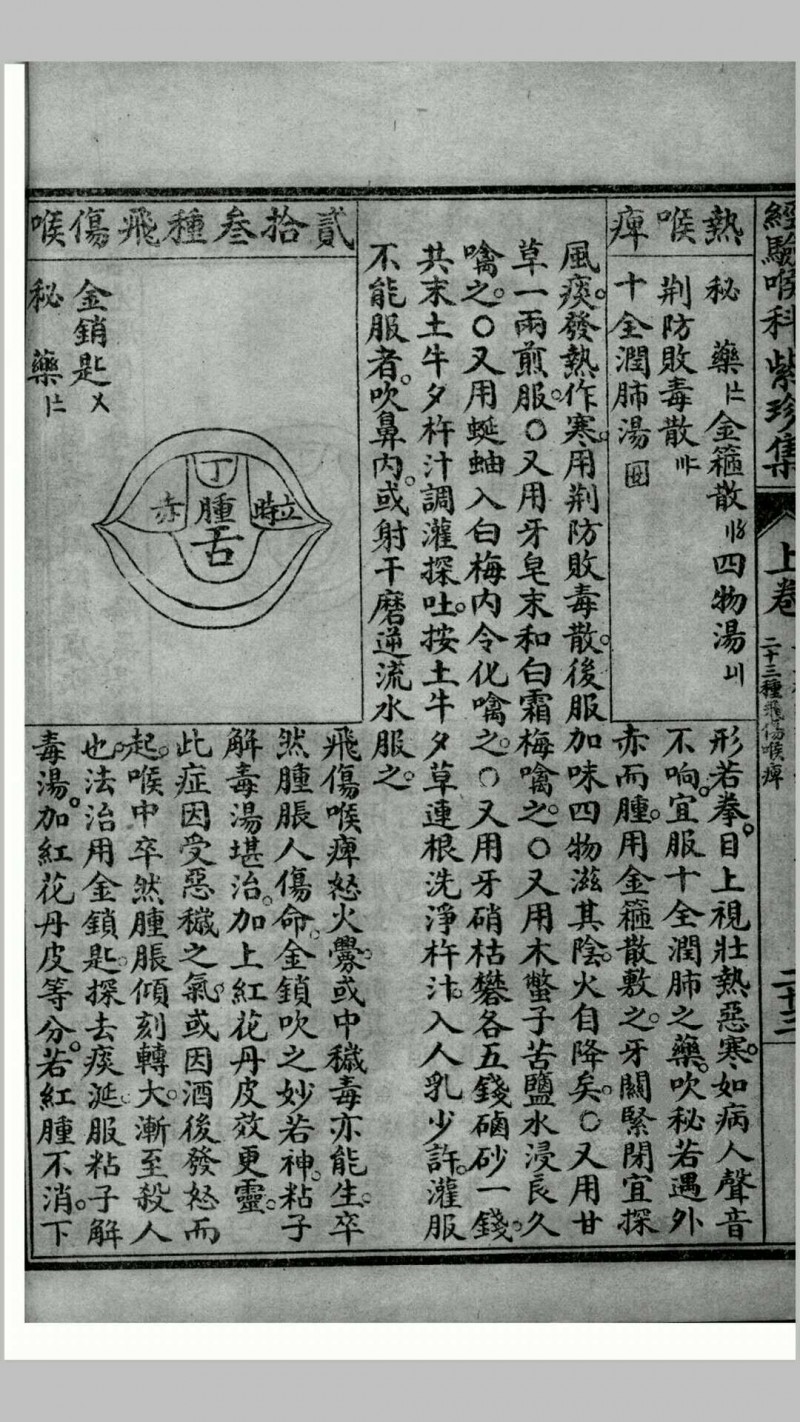 經驗喉科紫珍集
上卷
二十三種飛傷喉痺
二十三
熱喉痺
秘藥 金箍散 四物湯
荆防敗毒散
十全潤肺湯
形若拳。目上視壯熱惡寒。如病人聲音
不响。宜服十全潤肺之藥。吹秘若遇外
赤而腫。用金箍散敷之。牙關緊閉宜探
風痰。發熱作寒。用荆防敗毒散。後服加味四物滋其陰。火自降矣。〇又用甘
草一兩煎服。〇又用牙皂末和白霜梅噙之。〇又用木鱉子苦鹽水浸良久
噙之。〇又用蜒蚰入白梅內令化噙之。〇又用牙硝枯礬各五錢硇砂一錢。
共末土牛夕杵汁調灌探吐。按土牛夕草連根洗淨杵汁。入人乳少許。灌服
不能服者。吹鼻內。或射干磨逆流水服之。
貳拾叁種飛傷喉
金銷匙
秘藥
丁
赤 腫 時
舌
飛傷喉痺怒火爨。或中穢毒亦能生。卒
然腫脹人傷命。金鎖吹之妙若神。粘子
解毒湯堪治。加上紅花丹皮效更靈。
此症因受惡穢之氣。或因酒後發怒而
起。喉中卒然腫脹傾刻轉大。漸至殺人
也。法治用金鎖匙。探去痰涎。服粘子解
毒湯。加紅花丹皮等分。若紅腫不消。下